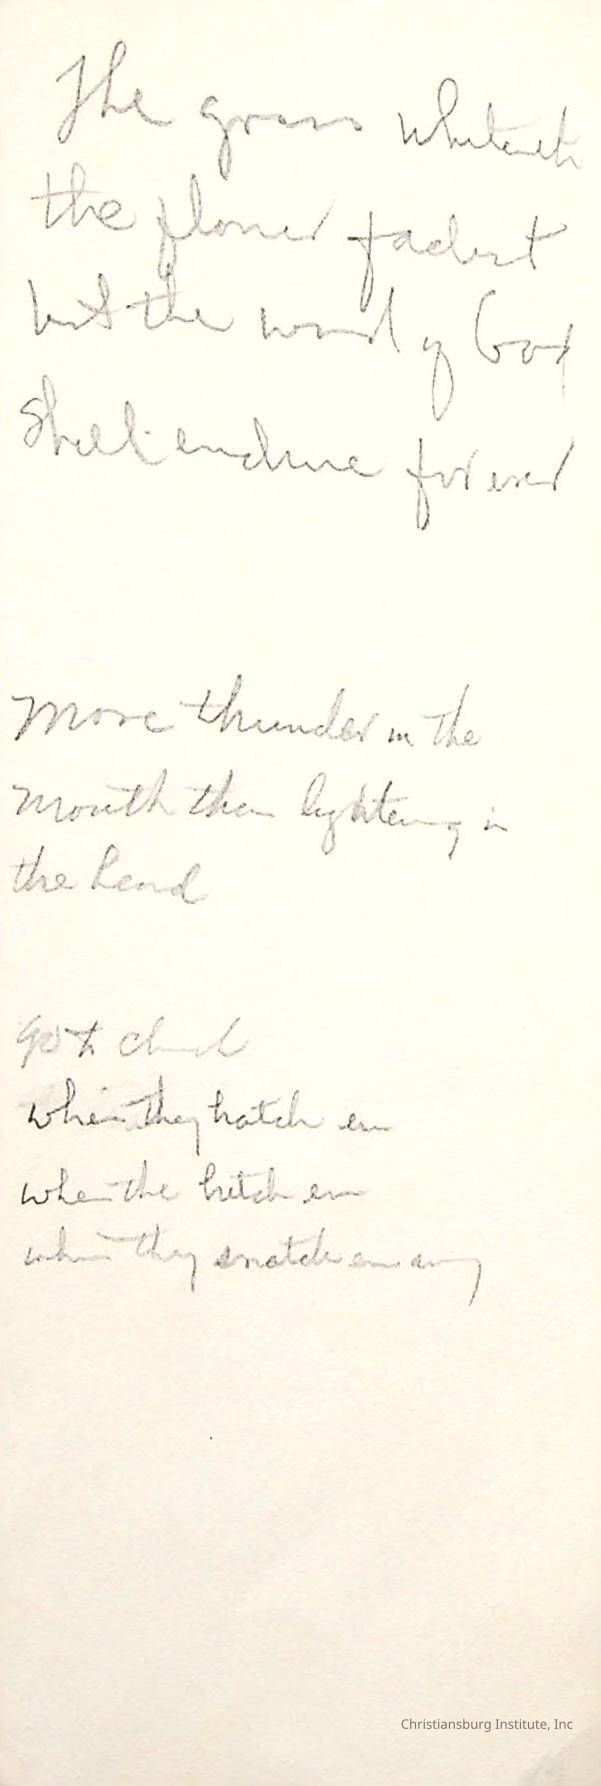 The grass whitereth
the flower fadest
but the word of God
shall endure forever
More thunder in the
mouth than lightening in
the head
Go to church
when they hatch em
when the hitch em
when they snatch em away
Christiansburg Institute, Inc